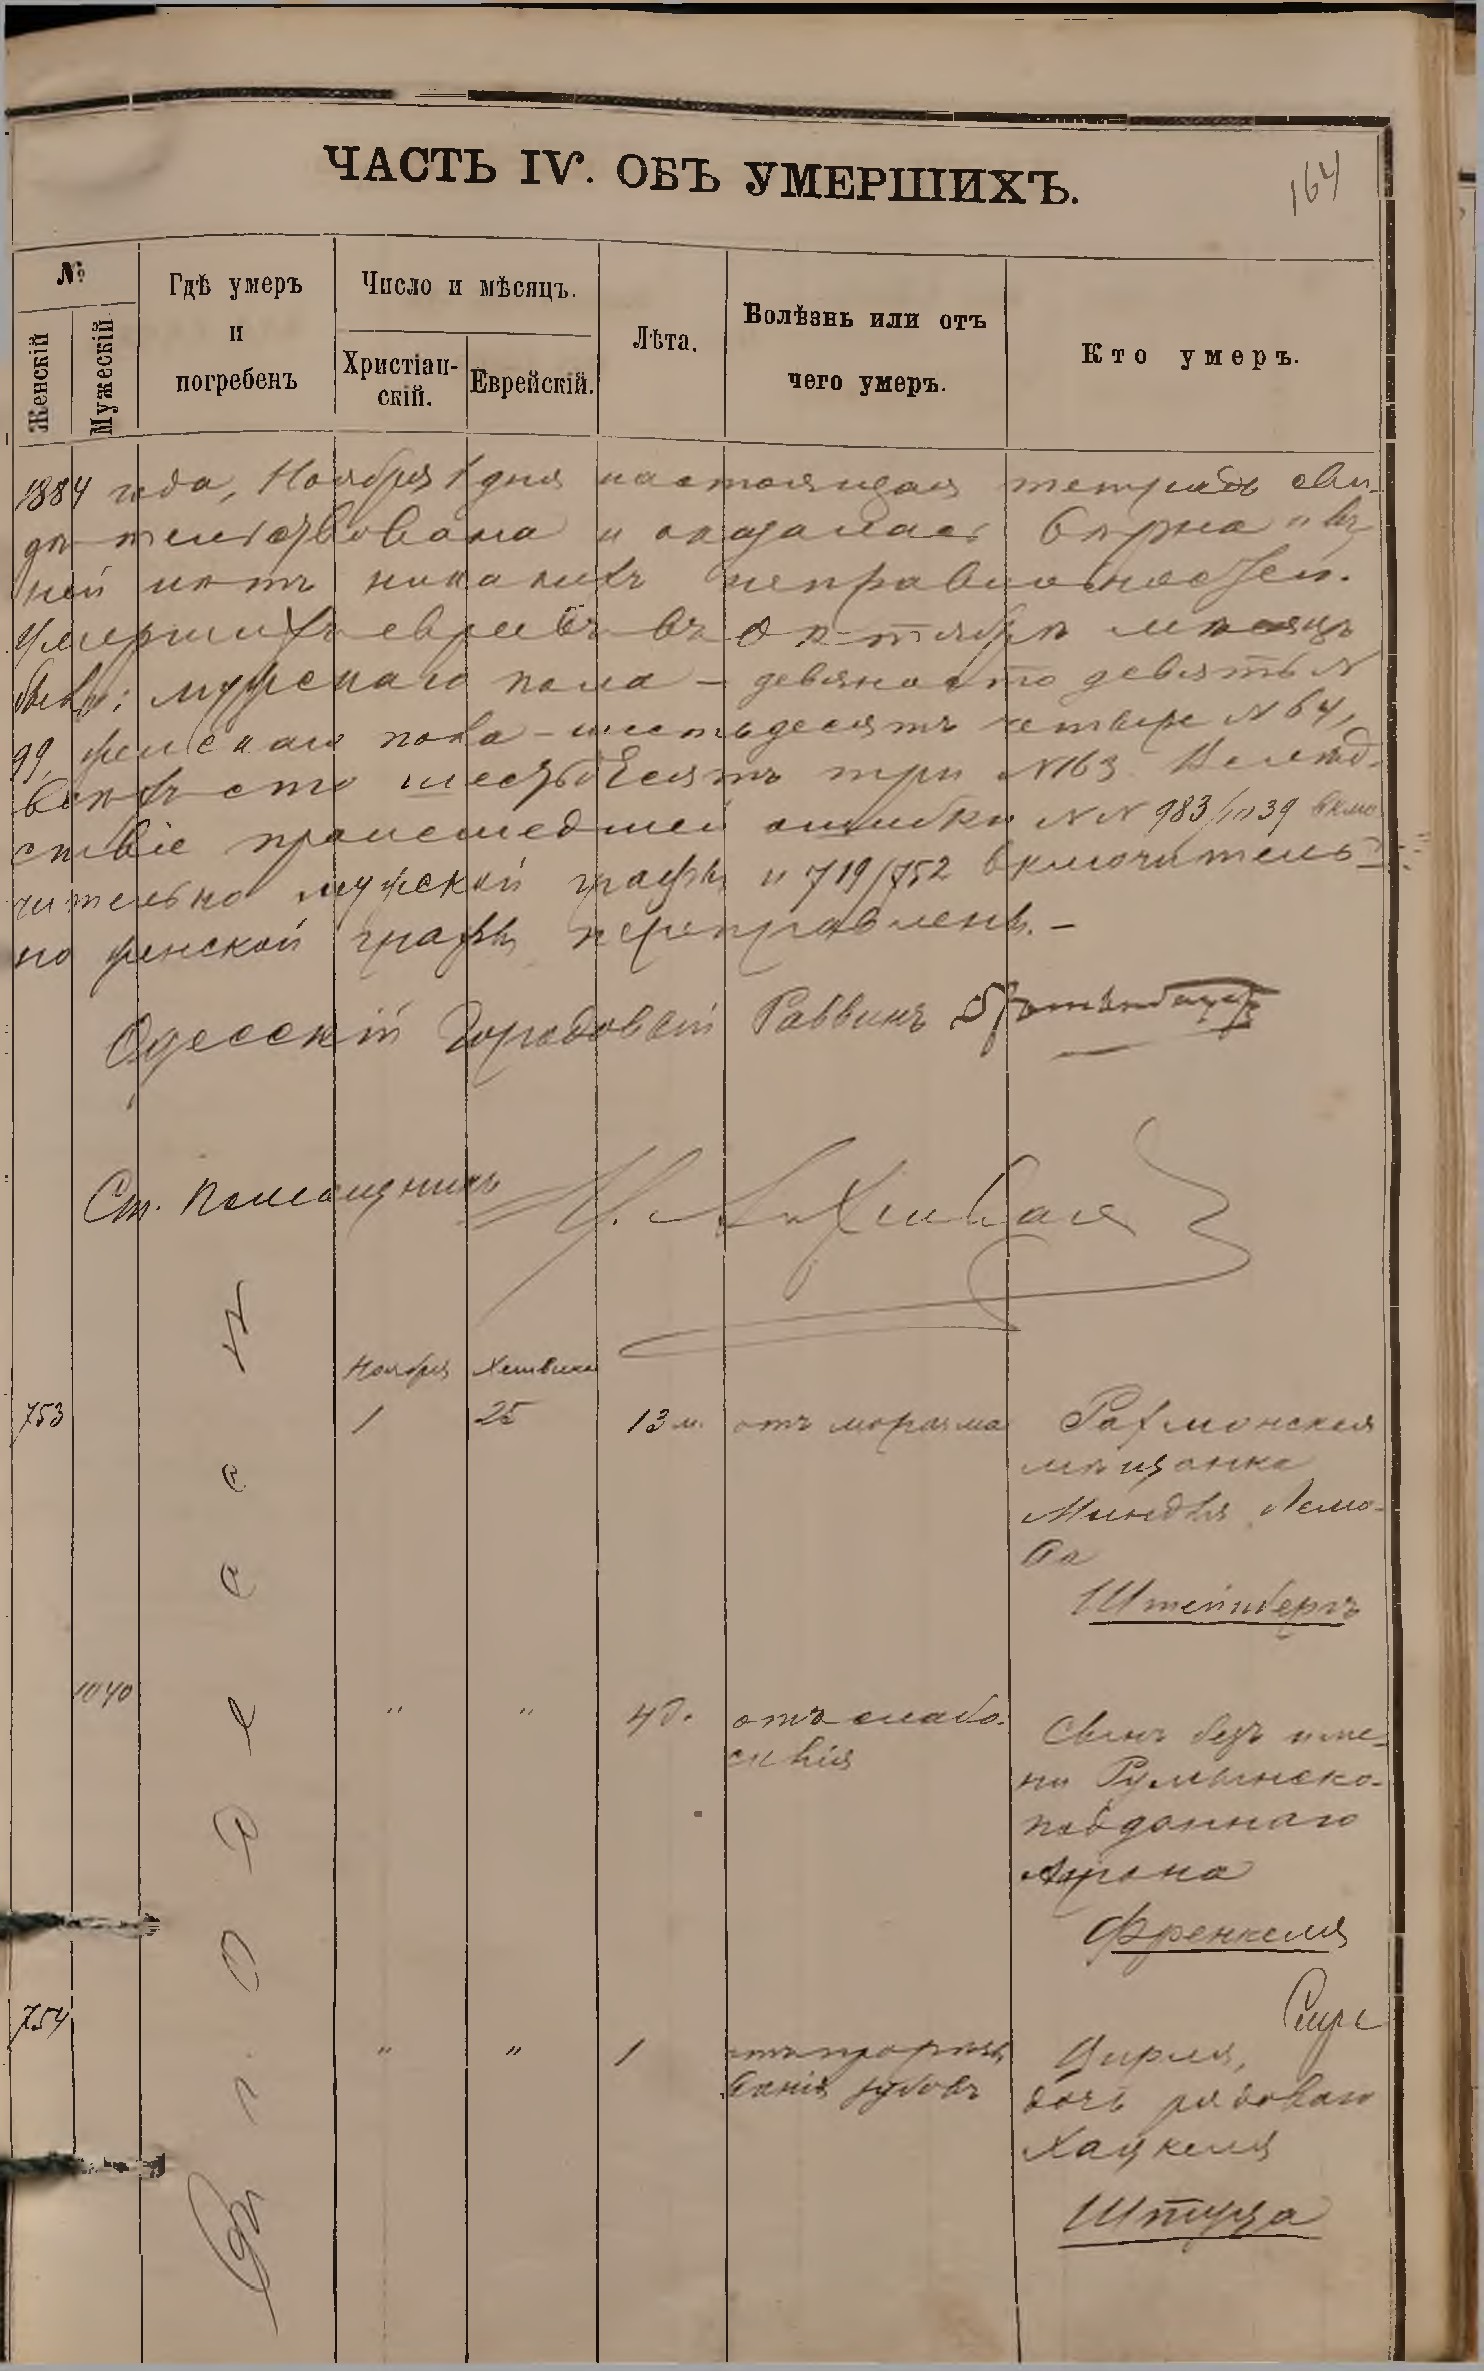 ЧАСТЬ IV. ОБЪ УМЕРШИХЪ.
164
№
Женскій
Мужескій
Гдѣ умеръ
и
погребенъ
Число и мѣсяцъ.
Христіан-
скій.
Еврейскій.
Лѣта.
Болѣзнь или отъ
чего умеръ.
Кто умеръ.
1884 года, Ноября 1 дня настоящая тетрадь сви-
дѣтельствована и оказалась вѣрна и въ
ней нѣтъ никакихъ неправильностей.
Умершихъ евреевъ въ Октябрѣ мѣсяцѣ
было: мужскаго пола – девяносто девять №
99, женскаго пола – шестьдесятъ четыре № 64,
всѣхъ сто шестьдесятъ три №163. Вслѣд-
ствіе происшедшей ошибки №№ 983/1039 вклю
чительно мужской графы и 719/752 включитель-
но женской графы переправлены. –
Одесскій Городовой Раввинъ
Ст. Помощникъ
Въ Одессѣ
Ноября Хешвана
753 1 25 13 м. отъ маразма
мѣщанка
Миндля
Штейнбергъ
1040 " " 4 д. отъ слабо-
силія
Сынъ безъ име-
ни Румынско-
подданнаго
Арона
Френкеля
754 " " 1 отъ прорѣзы
ванія зубовъ
Цирля,
дочь рядоваго
Хацкеля